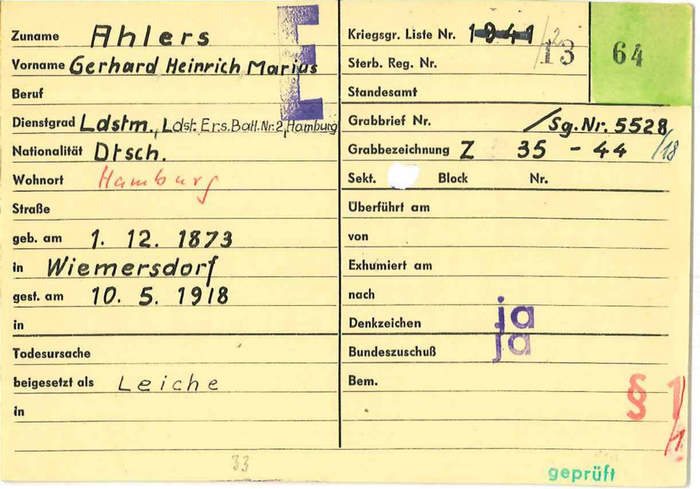 Zuname Ahlers
Vorname Gerhard Heinrich Marius
Beruf
Dienstgrad Ldstm., Ldst. Ers. Batl. Nr. 2, Hamburg
Nationalität Dtsch.
Wohnort Hamburg
Straße
geb. am 1. 12. 1873
in Wiemersdorf
gest. am 10. 5. 1918
in
Todesursache
beigesetzt als Leiche
in
33
Kriegsgr. Liste Nr. 1941 /2 13
64
Sterb. Reg. Nr.
Standesamt
Grabbrief Nr. /Sg. Nr. 5528
Grabbezeichnung Z 35 - 44 /18
Sekt. Block Nr.
Überführt am
von
Exhumiert am
nach
Denkzeichen ja
Bundeszuschuß ja
Bem.
§ 1
geprüft